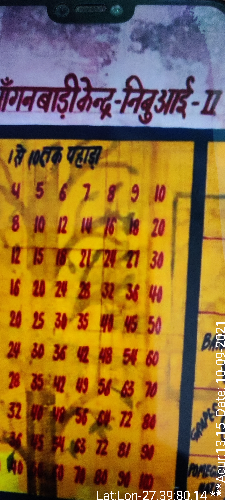 आँगनबाड़ी केन्द्र-निबुआई-II
1 से 10 तक पहाड़ा
4 5 6 7 8 9 10
8 10 12 14 16 18 20
12 15 18 21 24 27 30
16 20 24 28 32 36 40
20 25 30 35 40 45 50
24 30 36 42 48 54 60
28 35 42 49 56 63 70
32 40 48 56 64 72 80
36 45 54 63 72 81 90
40 50 60 70 80 90 100
Lat Lon-27.39.80.14 **Acur13.15, Date, 10-09-2021